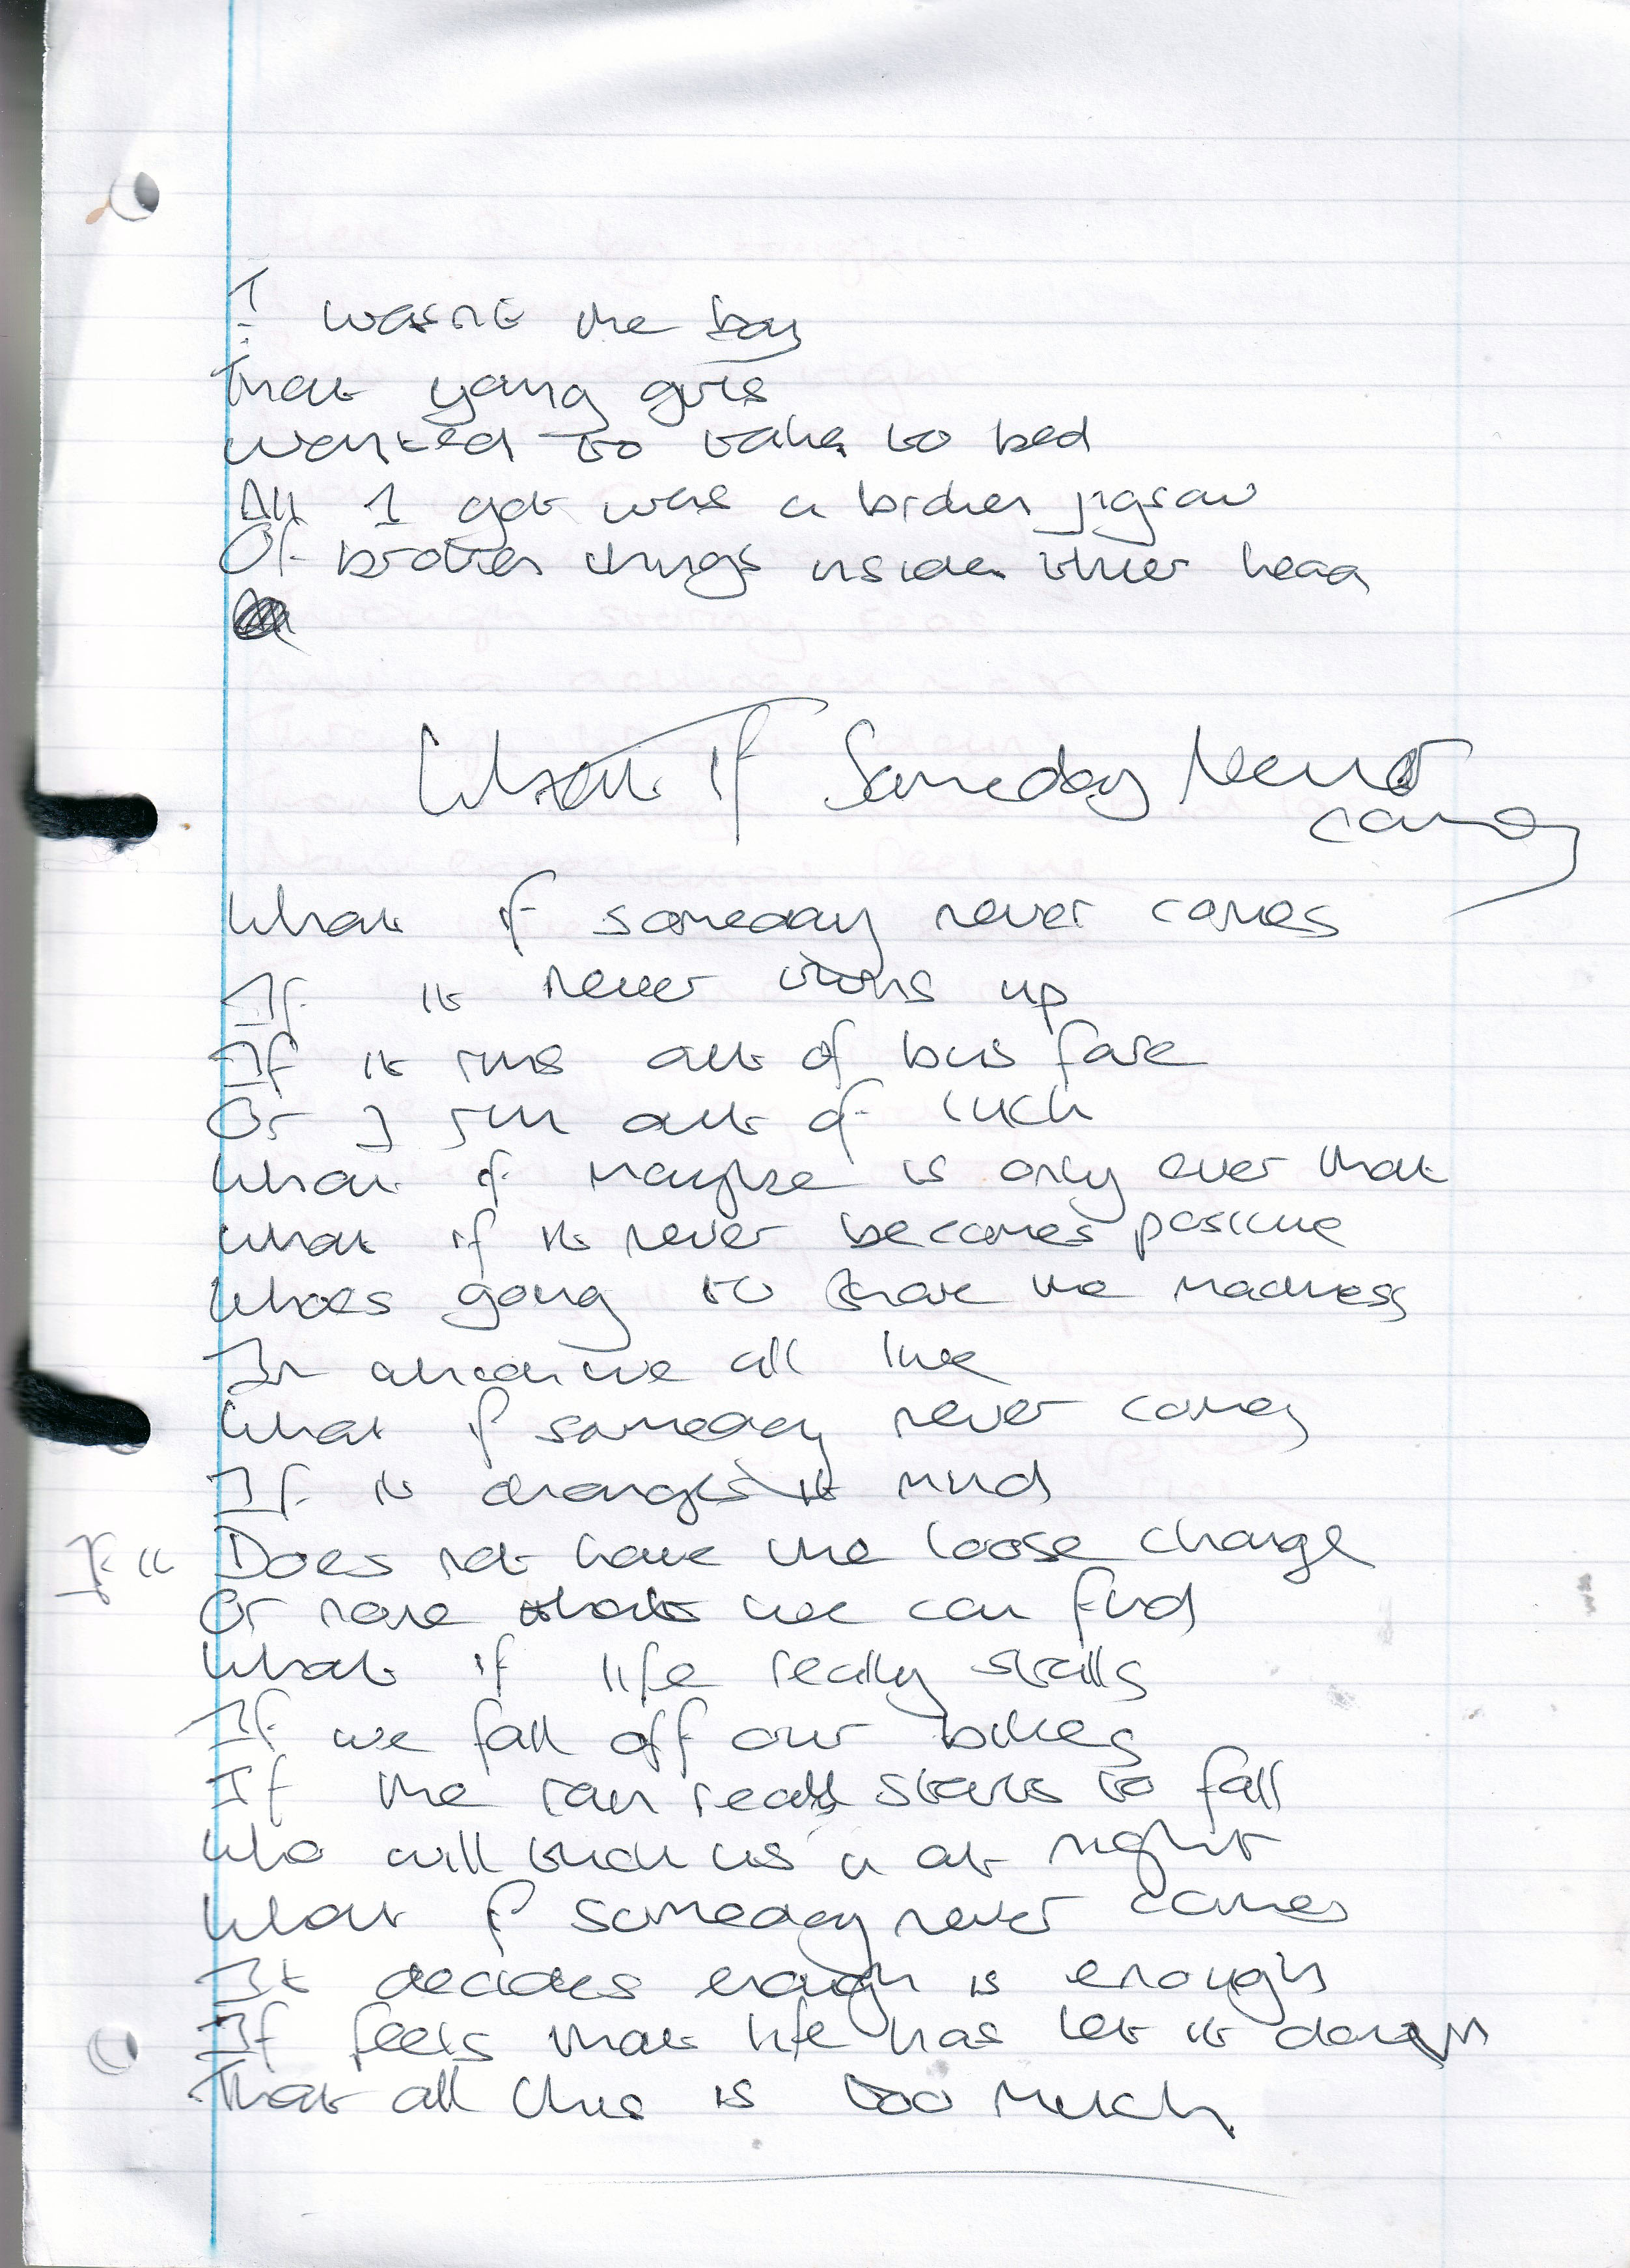 I wasnt the boy
That young girls
wanted to take to bed
All I got was a broken jigsaw
Of broken things inside their head
What If Someday Never
comes
What if someday never comes
If it never turns up
If it runs out of bus fare
Or I run out of luck
What if maybe is only ever that
What if it never becomes positive
Whoes going to share the madness
In which we all live
What if someday never comes
If it changes it mind
If it Does not have the loose change
Or none that we can find
What if life really stalls
If we fall off our bikes
If the rain starts to fall
Who will tuck us in at night
What if someday never comes
It decides enough is enough
If feels that life has let it down
That all this is too much